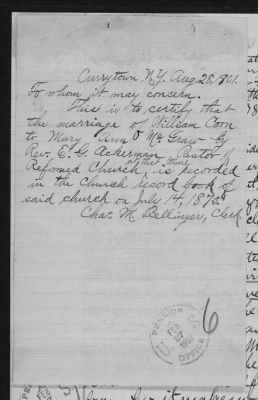 Currytown N.Y. Aug. 28, 1901.
To whom it may concern.
This is to certify that
the marriage of William Coon
to Mary Ann Mc Graw by
Rev. E. G. Ackerman, Pastor of
at that time
Reformed Church, is recorded
in the Church record book of
said church on July 14, 187
Chas. M. Bellinger, Clerk
PENSION
OFFICE
6